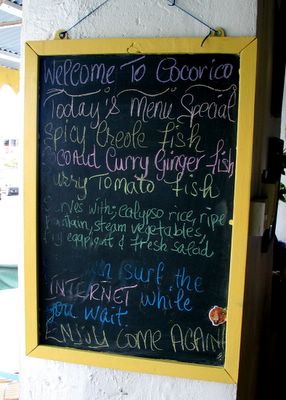 Welcome To Cocorico
Today's Menu Special
Spicy Creole fish
Curry Ginger fish
Curry Tomato fish
Serves with; calypso rice, ripe
plantain, steam vegetables,
eggplant & fresh salad
surf the
INTERNET while
you wait.
ENJOY COME AGAIN